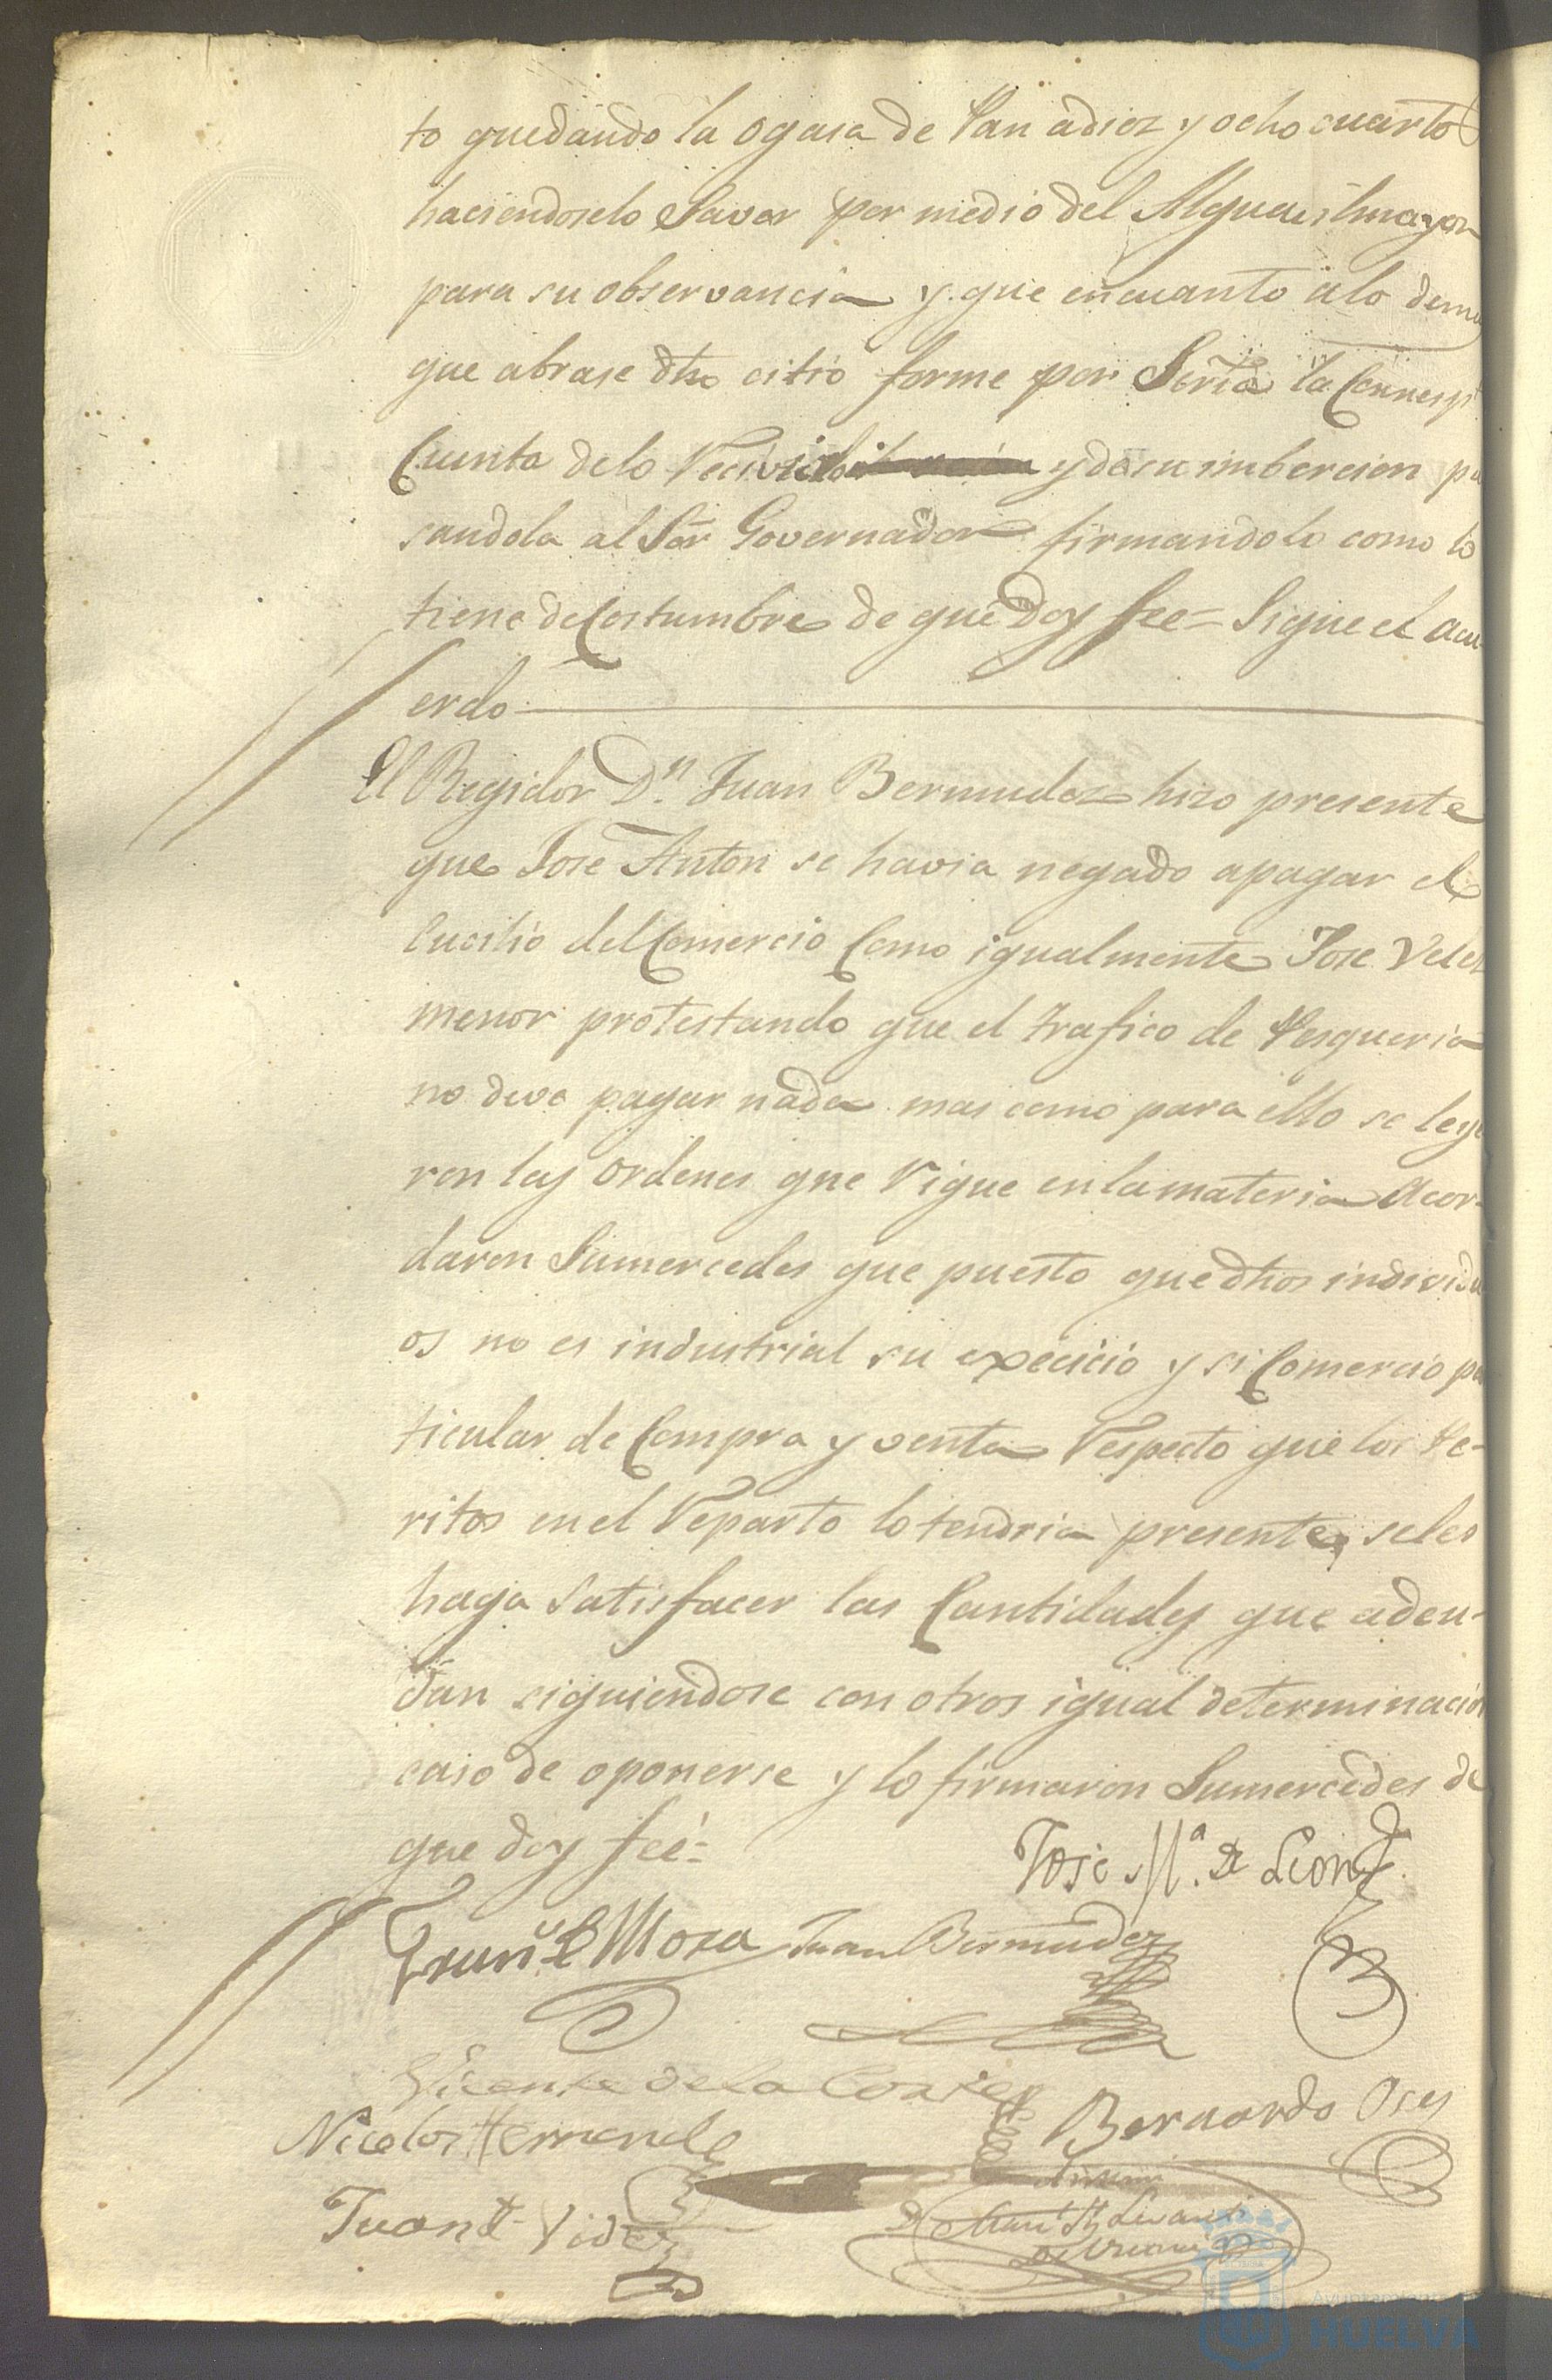 to quedando la ogasa de Pan adiez y ocho cuartos
haciendoselo Saver por medio del Alguacilmayor
para su observancia y que encuanto alo dema
que abrase dho citio forme por Seria la Corresp
Cuenta delo Recivido y desu imbercion pa
sandola al Sor Governador firmandolo como lo
tiene de Costumbre de que Doy fee= Sigue el acu
erdo
El Regidor Dn. Juan Bermudez hizo presente
que Jose Anton se havia negado apagar el
Cucilio del Comercio Como igualmente Jose Velez
menor protestando que el trafico de Pesqueria
no deve pagar nada mas como para ello se leye
ron las ordenes que Rigue enlamateria Acor-
daron Sumercedes que puesto que dhos individu
os no es industrial su execicio y si Comercio pa
ticular de Compra y venta Respecto que los Pe-
ritos en el Reparto lo tendria presente, seles
haga Satisfacer las Cantidades que adeu-
dan siguiendose con otros igual determinacion
caso de oponerse y lo firmaron Sumercedes de
que doy feé=
Jose Ma. de Leon
Mora Juan Bermudez
Vicente de la Corte
Bernardo Oses
Nicolas Hernande
Juan Videz
Ante mi
HUELVA